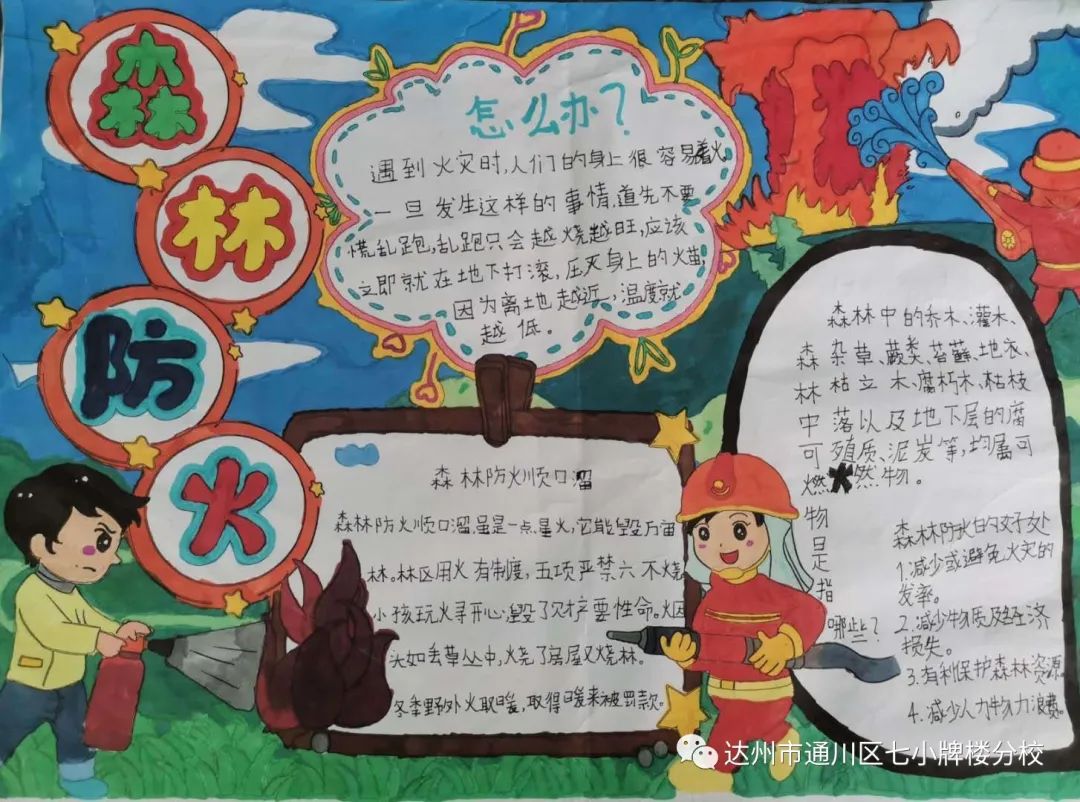 森
林
防
火
怎么办？
遇到火灾时,人们的身上很容易着火
一旦发生这样的事情,道先不要
慌乱跑,乱跑只会越烧越旺,应该
立即就在地下打滚,压灭身上的火苗,
因为离地越近,温度就
越低。
森林防火顺口溜
森林防火顺口溜虽是一点星火,它能毁万亩
林,林区用火有制度,五项严禁六不烧
小孩玩火寻开心,毁了灾护要性命。火因
头如丢草丛中,烧了房屋又烧林。
冬季野外火取暖,取得暖来被罚款。
森林中可燃物是指哪些？
森林中的乔木、灌木、
杂草、蕨类、苔藓、地衣、
枯立木、腐朽木、枯枝
落以及地下层的腐
殖质、泥炭等,均属可
燃物。
森林防火的好处
1.减少或避免火灾的
发率。
2.减少物质及经济
损失。
3.有利保护森林资源。
4.减少人力物力浪费。
达州市通川区七小牌楼分校